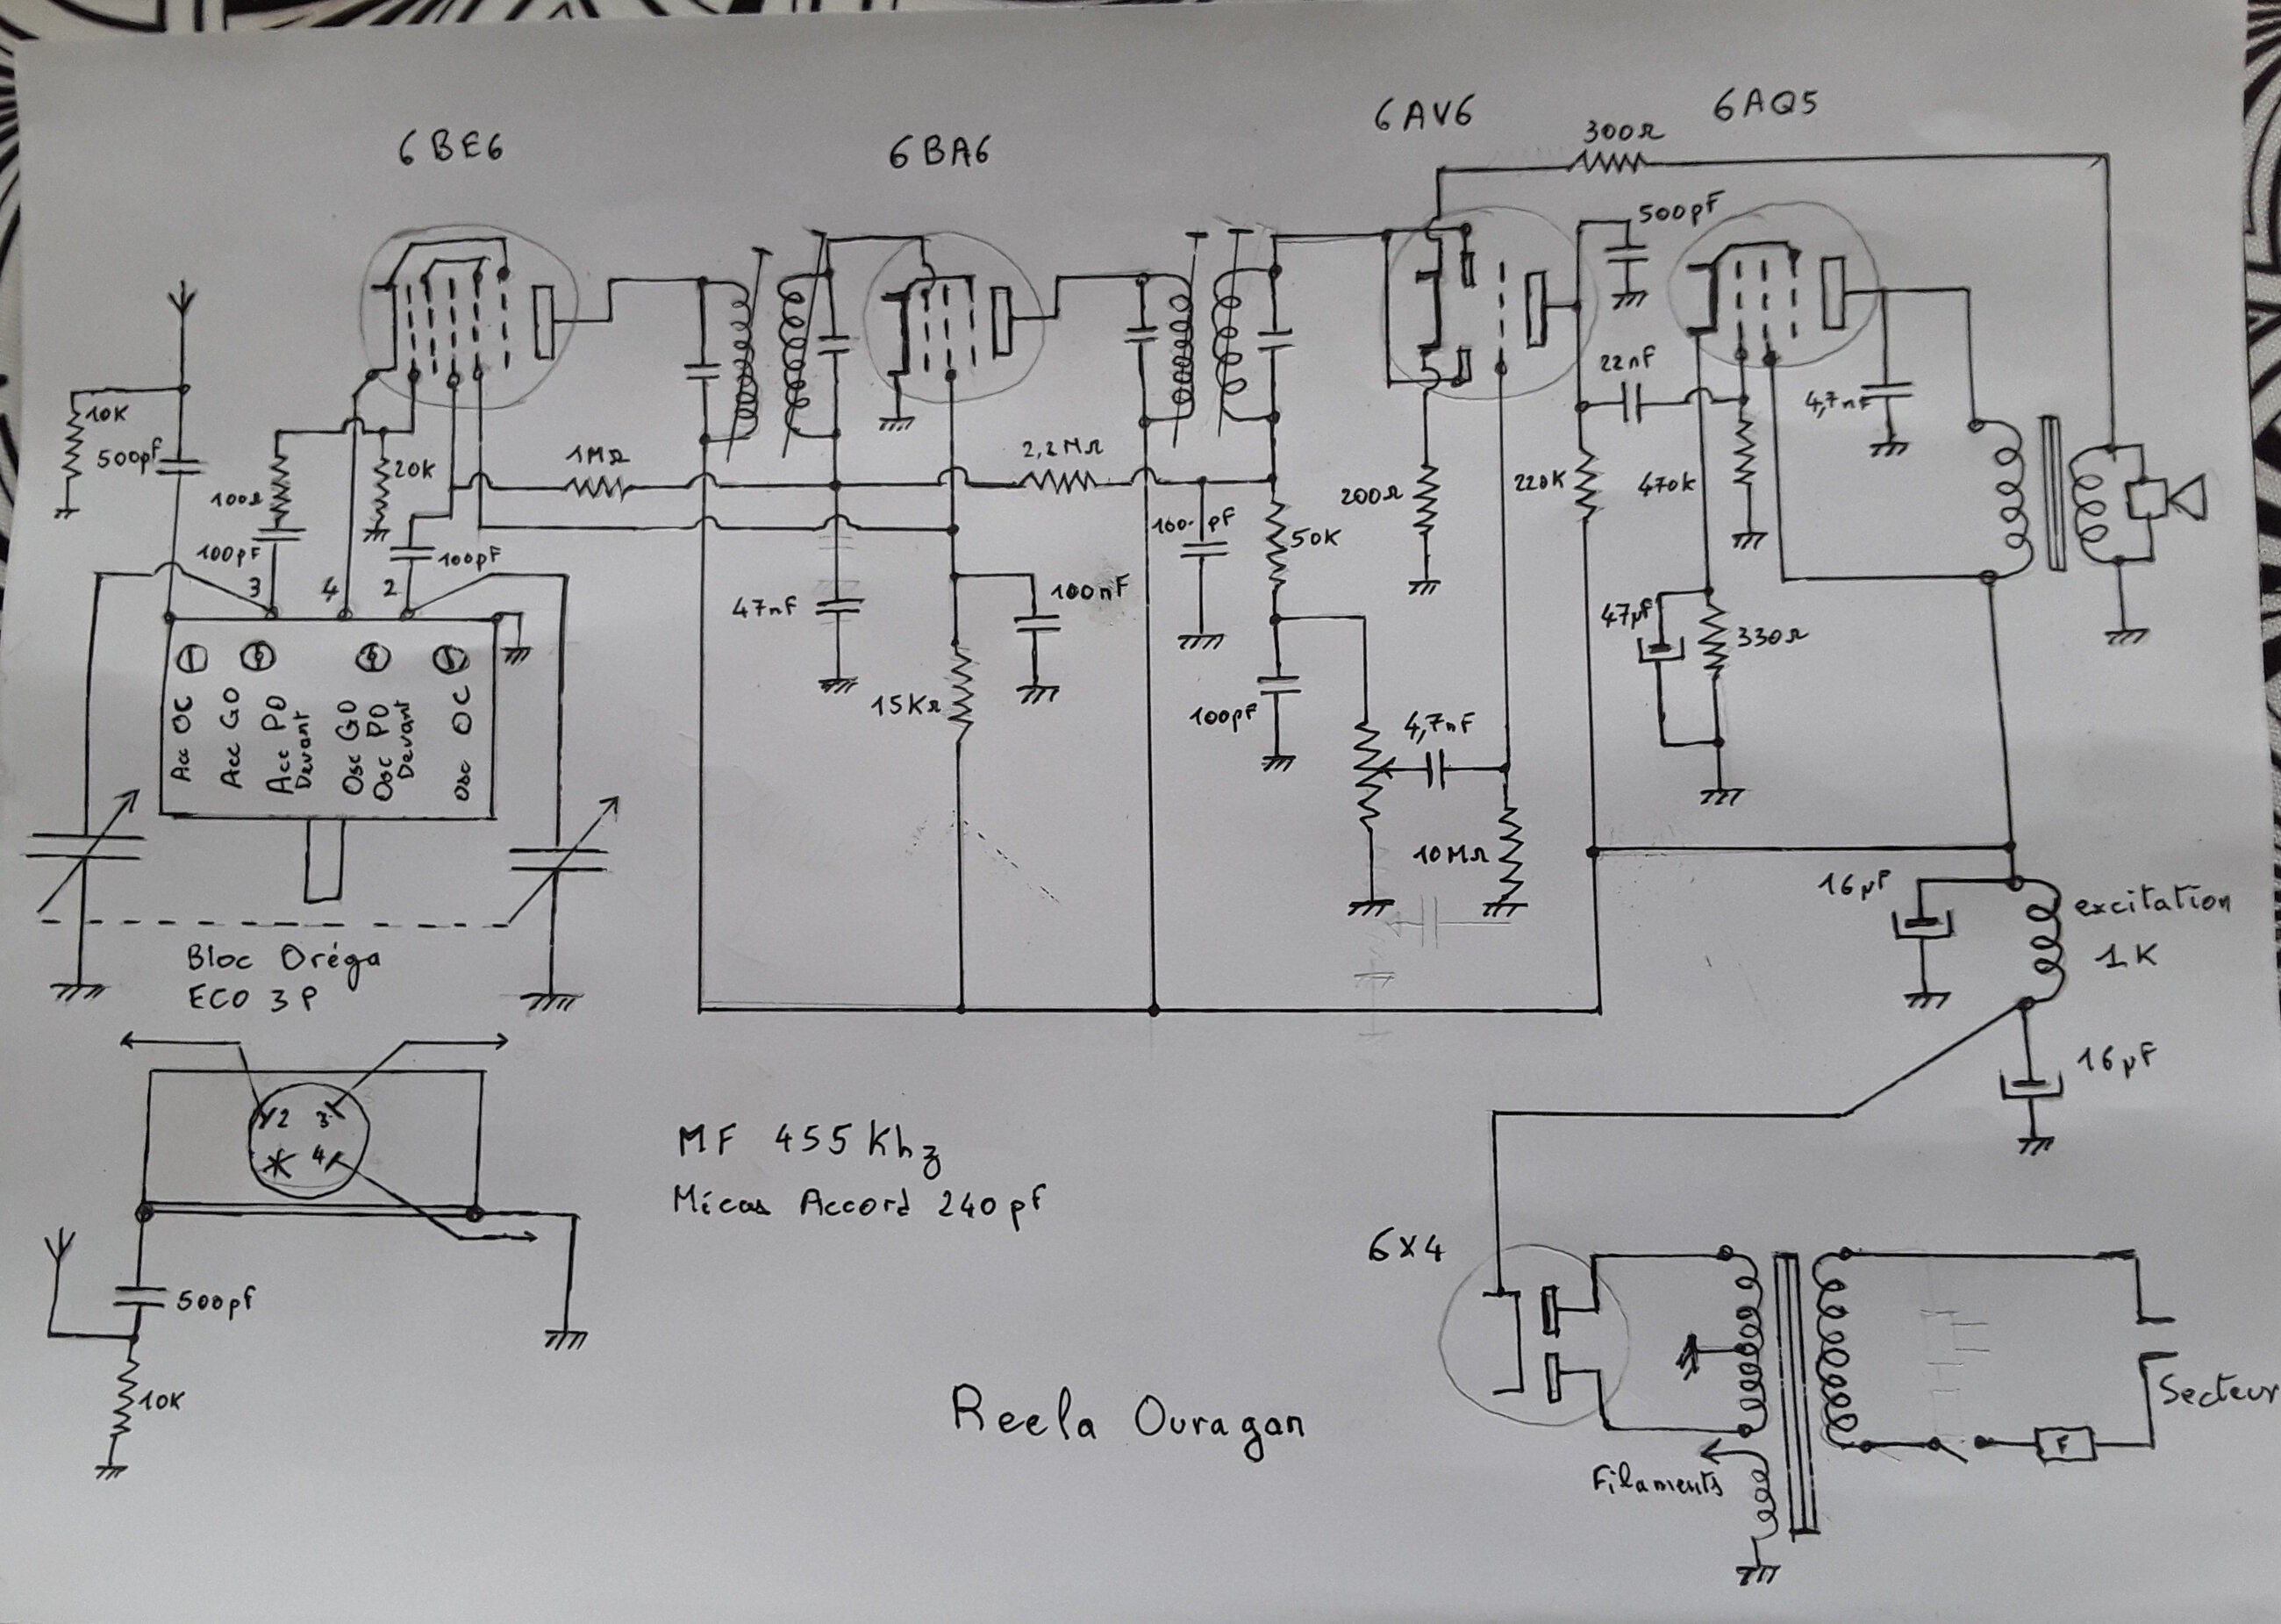 6BE6
6BA6
6AV6
6AQ5
300Ω
500pF
10K
500pF
100Ω
20K
100pF
100pF
3
4
2
1MΩ
2,2MΩ
22nF
4,7nF
200Ω
220K
470K
100pF
50K
47nF
100nF
47µF
330Ω
15KΩ
100pF
4,7nF
10MΩ
Acc OC
Acc GO
Acc PO
Devant
Osc GO
Osc PO
Devant
Osc OC
16µF
excitation
1K
16µF
Bloc Oréga
ECO 3P
2
3
4
500pF
10K
MF 455Khz
Micas Accord 240pf
6X4
Secteur
F
Filaments
Reela Ouragan